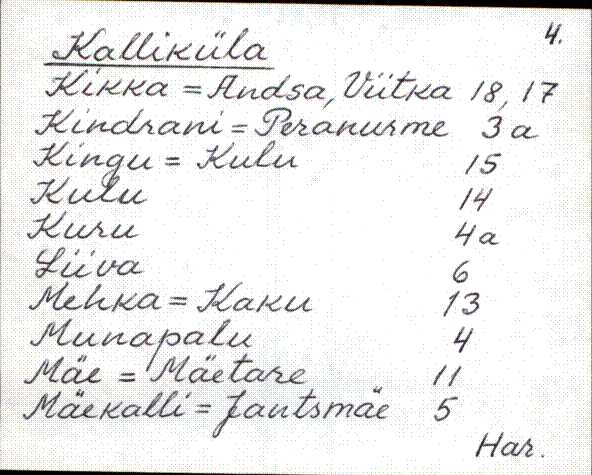 4.
Kalliküla
Kikka = Andsa, Viitka 18, 17
Kindrani = Peranurme 3a
Kingu = Kulu 15
Kulu 14
Kuru 4a
Liiva 6
Mehka = Kaku 13
Munapalu 4
Mäe = Mäetare 11
Mäekalli = Jantsmäe 5
Har.